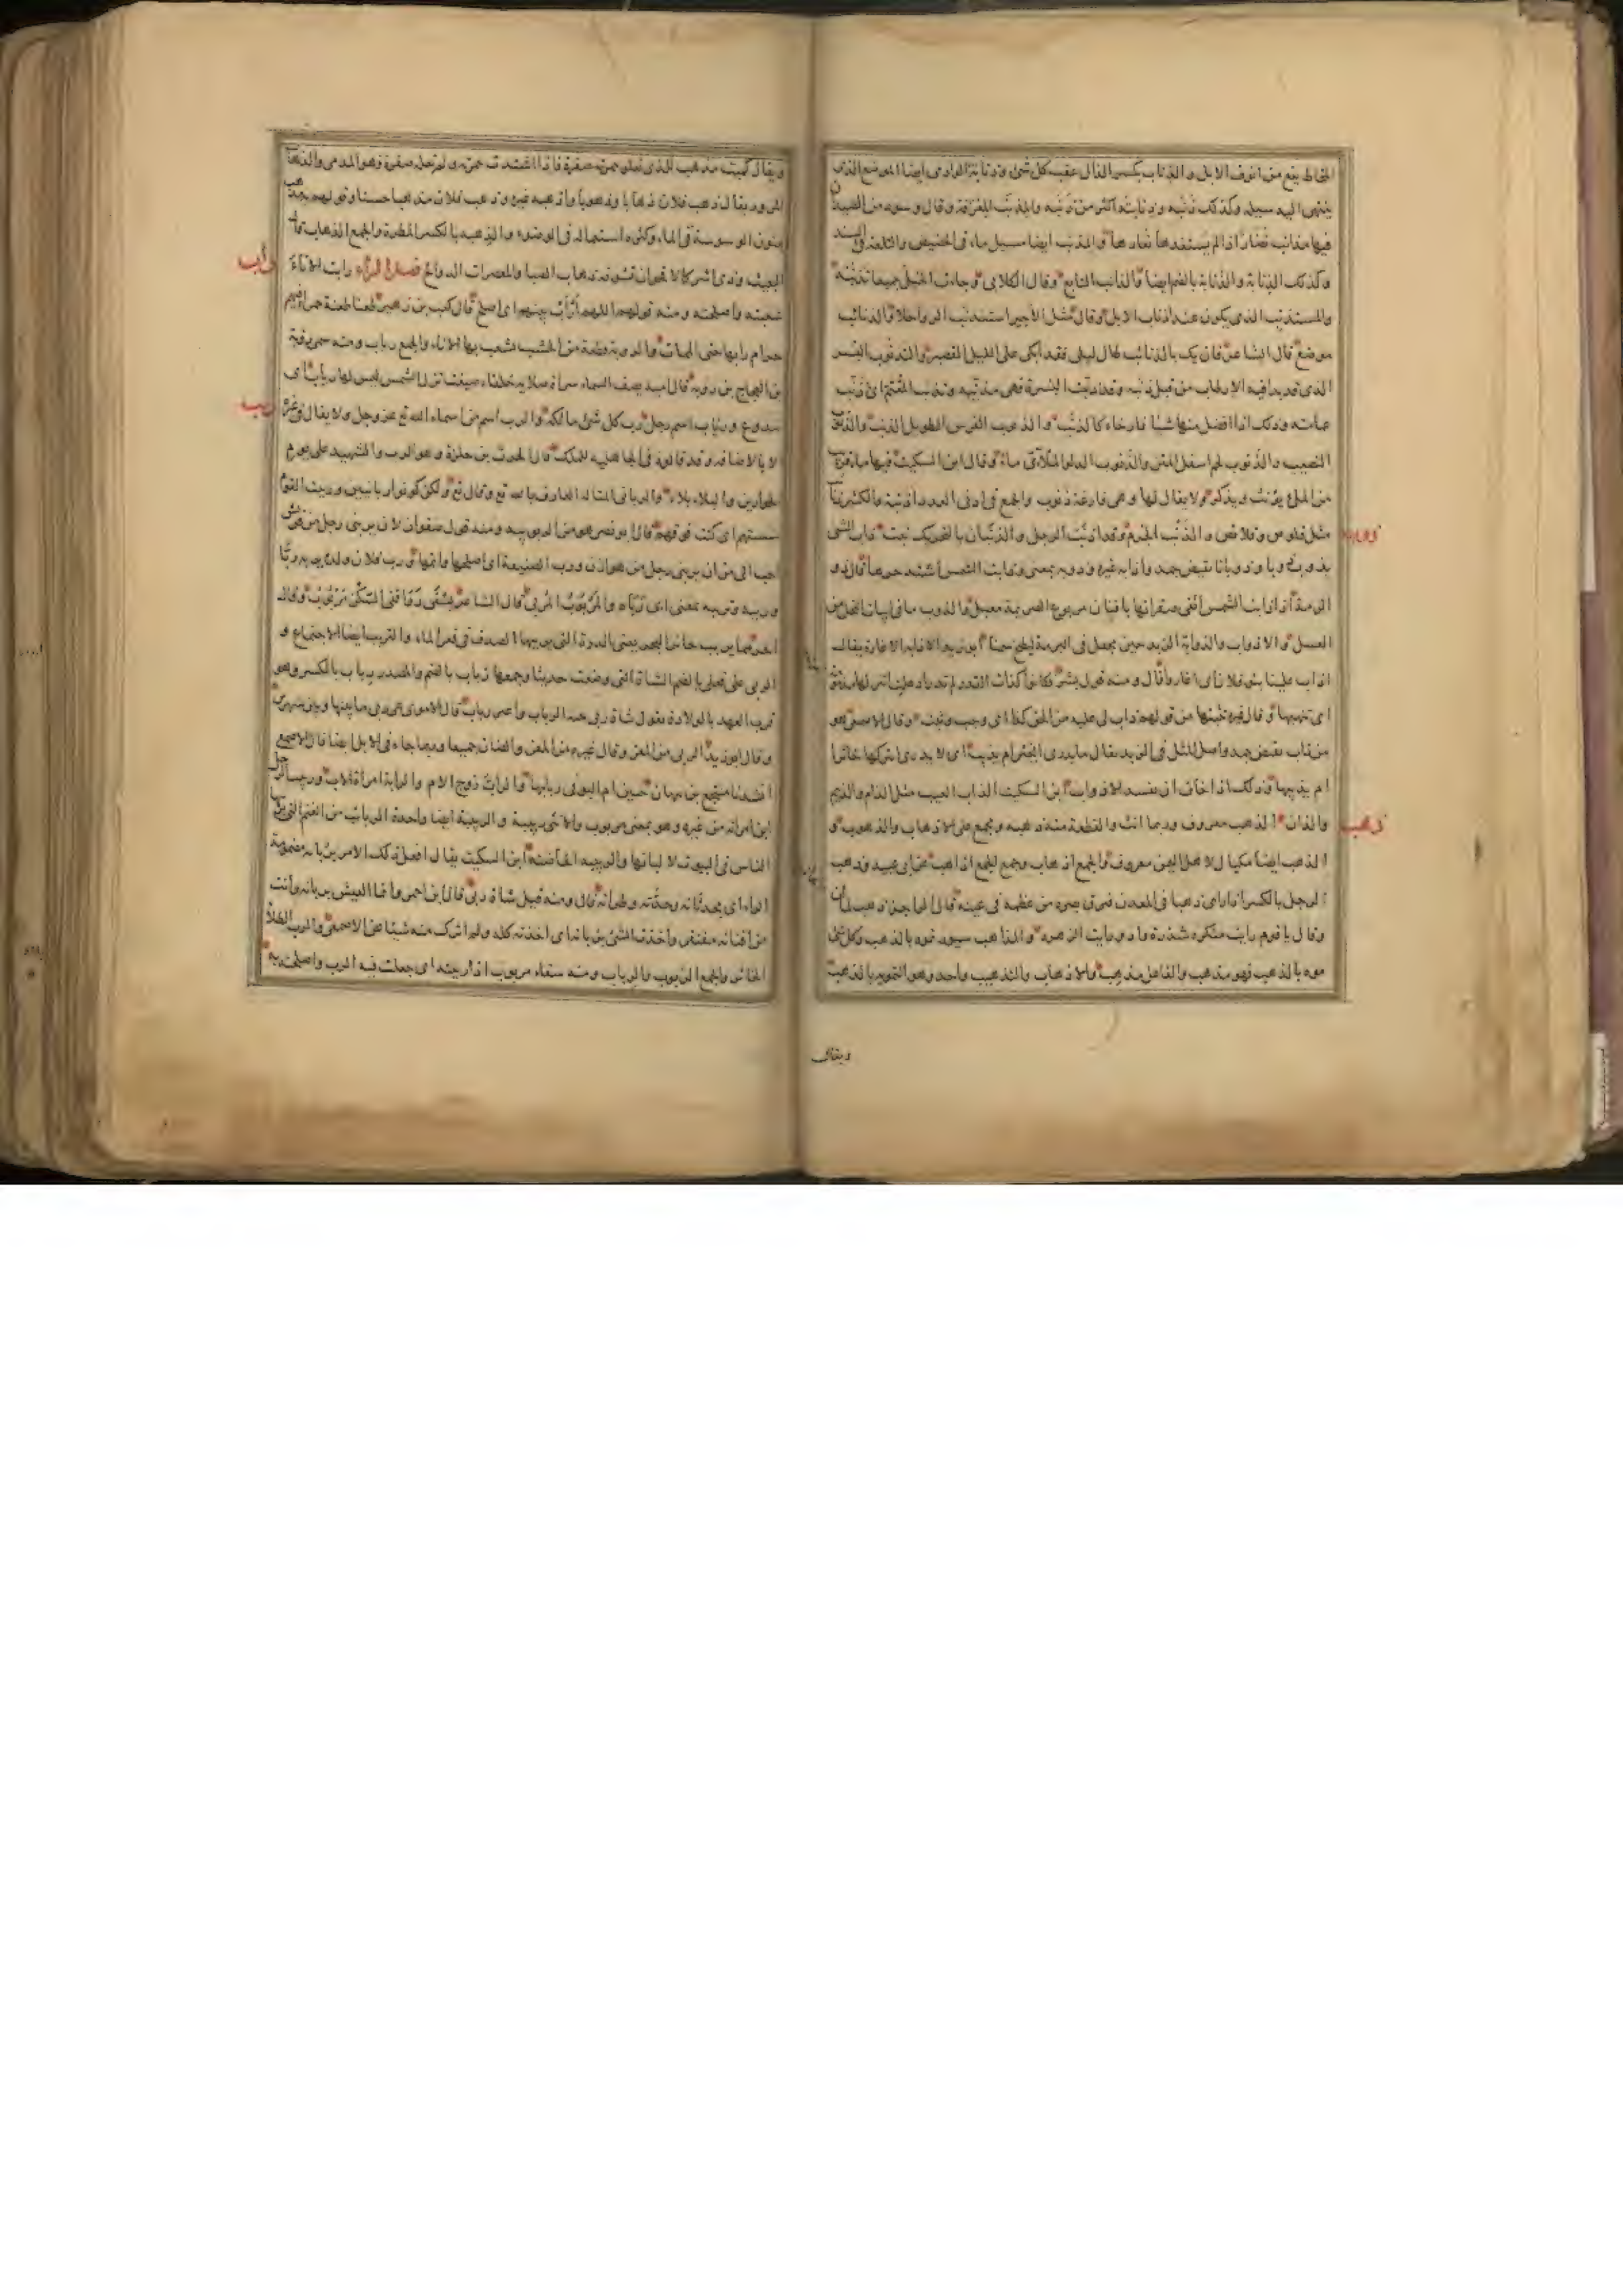 المخاط يقع من انوف الابل والذناب بكسر الذال عقب كل شئ وذنابة الوادى ايضا الموضع الذى
ينتهى اليه سيله وكذلك ذنبه وذنابته اكثر من ذنبه والمذنب المغرفة وقال وسود من الصيدان
فيها مذانب نضار اذا لم يستفدها نعارها والمذنب ايضا مسيل ماء فى الحضيض والتلعة فى السند
وكذلك الذنابة والذنابة بالضم ايضا والذانب التابع وقال الكلابى وجاءت الخيل جميعا تذنبه
والمستذنب الذى يكون عند اذناب الابل وقال مثل الأجير استذنب الرواحلا والذنائب
موضع قال الشاعر فان يك بالذنائب طال ليلى فقد ابكى على الليل القصير والتذنوب البسر
الذى قد بدا فيه الارطاب من قبل ذنبه وقد ذنبت البسرة فهى مذنبة وتذنب المعتم اى ذنب
عمامته وذلك اذا افضل منها شيئا فارخاه كالذنب والذنوب الفرس الطويل الذنب والذنوب
النصيب والذنوب لحم اسفل المتن والذنوب الدلو الملأى ماء وقال ابن السكيت فيها ماء قريب
من الملء يؤنث ويذكر ولا يقال لها وهى فارغة ذنوب والجمع فى ادنى العدد اذنبة والكثير ذنائب
مثل قلوص وقلائص والذنب الجرم وقد اذنب الرجل والذنبان بالتحريك نبت ذاب الشئ
ذوب
يذوب ذوبا وذوبانا نقيض جمد واذابه غيره وذوبه بمعنى وذابت الشمس اشتد حرها قال ذو
الرمة اذا ذابت الشمس اتقى صقراتها بافنان مربوع الصريمة معبل والذوب ما فى ابيات النحل من
العسل والاذواب والذوابة الزبد حين يجعل فى البرمة ليطبخ سمنا ابو زيد الاذابة الاغارة يقال
اذاب علينا بنو فلان اى اغاروا قال ومنه قول بشر فكانوا كذات القدر لم تدر اذ غلت اتنزلها مذمومة
اى تنهبها وقال غيره تثبتها من قولهم ذاب لى عليه من الحق كذا اى وجب وثبت وقال الاصمعى هو
من ذاب نقيض جمد واصل المثل فى الزبد يقال ما يدرى ايخثر ام يذيب اى لا يدرى ايتركها خاثرا
ام يذيبها وذلك اذا خاف ان يفسد الاذواب ابن السكيت الذاب العيب مثل الذام والذيم
والذان الذهب معروف وربما انث والقطعة منه ذهبة ويجمع على الاذهاب والذهوب و
ذهب
الذهب ايضا مكيال لاهل اليمن معروف والجمع اذهاب وجمع الجمع اذاهب عن ابى عبيد وذهب
الرجل بالكسر اذا راى ذهبا فى المعدن فبرق بصره من عظمه فى عينه قال الراجز ذهب لما ان
وقال يا قوم رايت منكره شذرة واد ورايت الزهره والمذاهب سيور تموه بالذهب وكل شئ
موه بالذهب فهو مذهب والفاعل مذهب والاذهاب والتذهيب واحد وهو التمويه بالذهب
ويقال
ويقال كميت مذهب للذى تعلو حمرته صفرة فاذا اشتدت حمرته ولم تعله صفرة فهو المدمى والذهاب
المرور يقال ذهب فلان ذهابا وذهوبا واذهبه غيره وذهب فلان مذهبا حسنا وقولهم به مذهب
يعنون الوسوسة فى الماء وكثرة استعماله فى الوضوء والذهبة بالكسر المطرة والجمع الذهاب قال
البعيث وذى اشر كالاقحوان تشوفه ذهاب الصبا والمعصرات الدوالح فصل الراء رابت الاناء
رأب
شعبته واصلحته ومنه قولهم اللهم ارأب بينهم اى اصلح قال كعب بن زهير طعنا طعنة حمراء فيهم
حرام رأبها حتى الممات والرؤبة قطعة من الخشب يشعب بها الاناء والجمع رئاب ومنه سمى رؤبة
بن العجاج بن رؤبة قال امية يصف السماء سراة صلاية خلقاء صيغت تزل الشمس ليس لها رئاب اى
صدوع ورئاب اسم رجل رب كل شئ مالكه والرب اسم من اسماء الله تع عز وجل ولا يقال فى غيره
ربب
الا بالاضافة وقد قالوه فى الجاهلية للملك قال الحرث بن حلزة وهو الرب والشهيد على يوم
الحوارين والبلاء بلاء والربانى المتاله العارف بالله تع وقال تع ولكن كونوا ربانيين ورببت القوم
سستهم اى كنت فوقهم قال ابو نصر هو من الربوبية ومنه قول صفوان لان يربنى رجل من قريش
احب الى من ان يربنى رجل من هوازن ورب الضيعة اى اصلحها واتمها ورب فلان ولده يربه ربا
ورببه وترببه بمعنى اى رباه والمربوب المربى قال الشاعر يسقى دواء قفى السكن مربوب وقال
اخر مما يربب حائر البحر يعنى الدرة التى يربيها الصدف فى قعر الماء والترب ايضا الاجتماع و
الربى على فعلى بالضم الشاة التى وضعت حديثا وجمعها رباب بالضم والمصدر رباب بالكسر وهو
قرب العهد بالولادة تقول شاة ربى بينة الرباب واعنز رباب قال الاموى هى ربى ما بينها وبين شهرين
وقال ابو زيد الربى من المعز وقال غيره من المعز والضان جميعا وربما جاء فى الابل ايضا قال الاصمعى
انشدنا منتجع بن نبهان حنين ام البو فى ربابها والراب زوج الام والرابة امراة الاب وربيب الرجل
ابن امراته من غيره وهو بمعنى مربوب والانثى ربيبة والربيبة ايضا واحدة الربائب من الغنم التى يربيها
الناس فى البيوت لالبانها والربيبة الحاضنة ابن السكيت يقال افعل ذلك الامر بربانه مضمومة
الراء اى بحدثانه وجدته وطراءته قال ومنه قيل شاة ربى قال ابن احمر وانما العيش بربانه وانت
من افنانه مفتقر واخذت الشئ بربانه اى اخذته كله ولم اترك منه شيئا عن الاصمعى والرب الطلاء
الخاثر والجمع الربوب والرباب ومنه سقاء مربوب اذا رببته اى جعلت فيه الرب واصلحته به